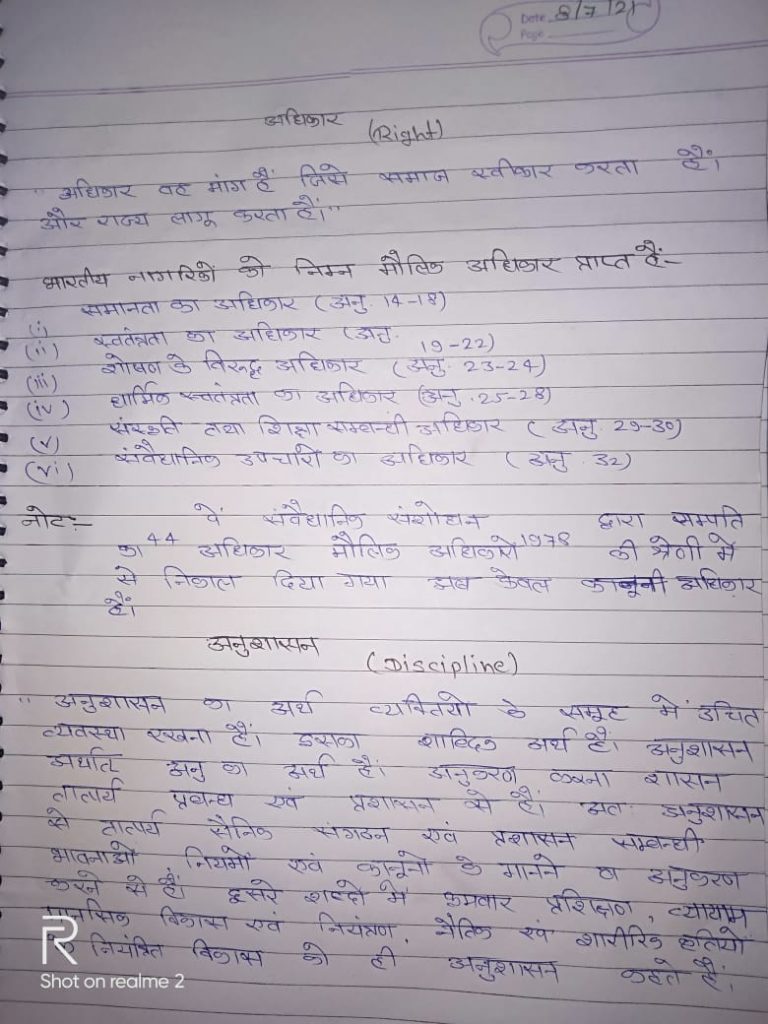 Date 8/7/21
Page
अधिकार (Right)
"अधिकार वह मांग हैं जिसे समाज स्वीकार करता हैं।
और राज्य लागू करता हैं।"
भारतीय नागरिकों को निम्न मौलिक अधिकार प्राप्त हैं-
(i) समानता का अधिकार (अनु. 14-18)
(ii) स्वतंत्रता का अधिकार (अनु. 19-22)
(iii) शोषण के विरुद्ध अधिकार (अनु. 23-24)
(iv) धार्मिक स्वतंत्रता का अधिकार (अनु. 25-28)
(v) संस्कृति तथा शिक्षा सम्बन्धी अधिकार (अनु. 29-30)
(vi) संवैधानिक उपचारों का अधिकार (अनु. 32)
नोट:- 44 वें संवैधानिक संशोधन 1978 द्वारा सम्पति
का अधिकार मौलिक अधिकारों की श्रेणी में
से निकाल दिया गया अब केवल कानूनी अधिकार
हैं।
अनुशासन (Discipline)
"अनुशासन का अर्थ व्यक्तियों के समूह में उचित
व्यवस्था रखना हैं। इसका शाब्दिक अर्थ हैं। अनुशासन
अर्थात अनु का अर्थ हैं। अनुकरण करना शासन
तात्पर्य प्रबन्ध एवं प्रशासन से हैं। अतः अनुशासन
से तात्पर्य सैनिक संगठन एवं प्रशासन सम्बन्धी
भावनाओं, नियमों एवं कानूनों के मानने व अनुकरण
करने से हैं। दूसरे शब्दों में क्रमवार प्रशिक्षण, व्यायाम
मानसिक विकास एवं नियंत्रण, नैतिक एवं शारीरिक
नियंत्रित विकास को ही अनुशासन कहते हैं।
R
Shot on realme 2